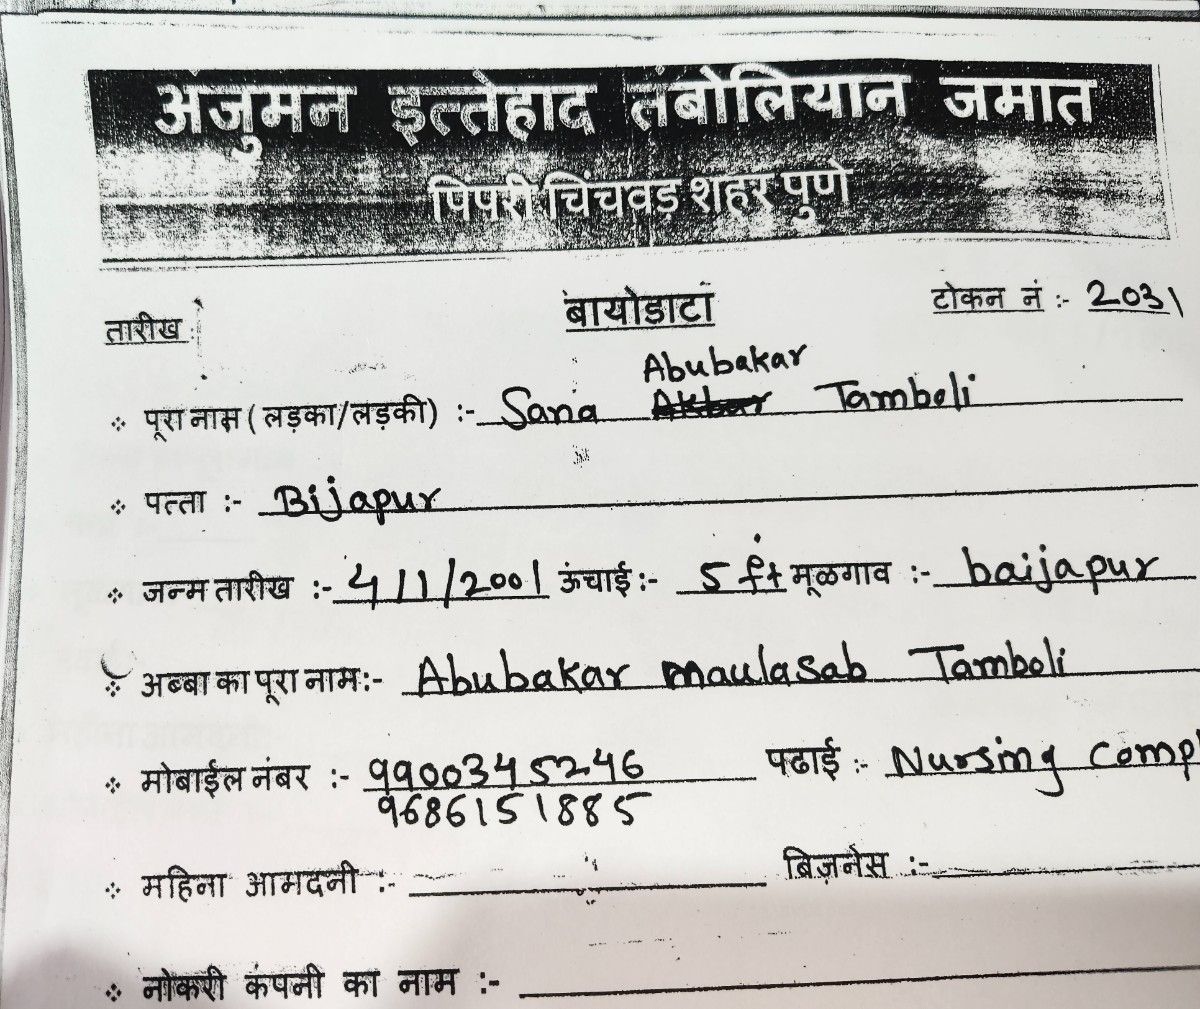 अंजुमन इत्तेहाद तंबोलियान जमात
पिंपरी चिंचवड शहर पुणे
तारीख : बायोडाटा टोकन नं :- 2031
Abubakar
पूरा नाम (लड़का/लड़की) :- Sana Akbar Tamboli
पत्ता :- Bijapur
जन्म तारीख :- 4/1/2001 ऊंचाई :- 5 ft मूळगाव :- baijapur
अब्बा का पूरा नाम:- Abubakar maulasab Tamboli
मोबाईल नंबर :- 9900345246 पढाई :- Nursing Compl
9686151885
महिना आमदनी :- बिज़नेस :-
नोकरी कंपनी का नाम :-